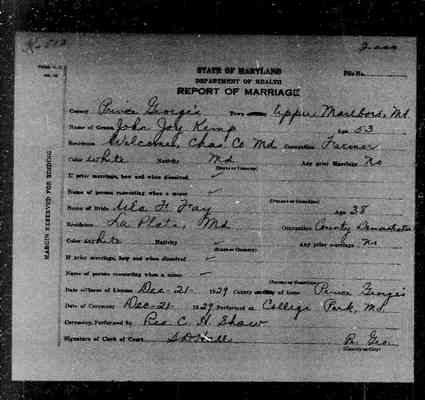 K-512
STATE OF MARYLAND
DEPARTMENT OF HEALTH
REPORT OF MARRIAGE
File No.
MARGIN RESERVED FOR BINDING
County Prince George's Town Upper Marlboro, Md.
Name of Groom John Joy Kemp Age 53
Residence Welcome, Chas. Co Md Occupation Farmer
Color White Nativity Md Any prior Marriage No
(State or Country)
If prior marriage, how and when dissolved
Name of person consenting when a minor
(Parent or Guardian)
Name of Bride F. Fay Age 38
Residence La Plata, Md Occupation County Demonstrator
Color White Nativity Any prior marriage No
(State or Country)
If prior marriage, how and when dissolved
Name of person consenting when a minor
(Parent or Guardian)
Date of License Dec. 21 1929 County of issue Prince George's
Date of Ceremony Dec. 21 1929 Performed at College Park, Md.
Ceremony Performed by Rev C. H. Shaw
Signature of Clerk of Court S D Hall Pr. Geo.
(County or City)